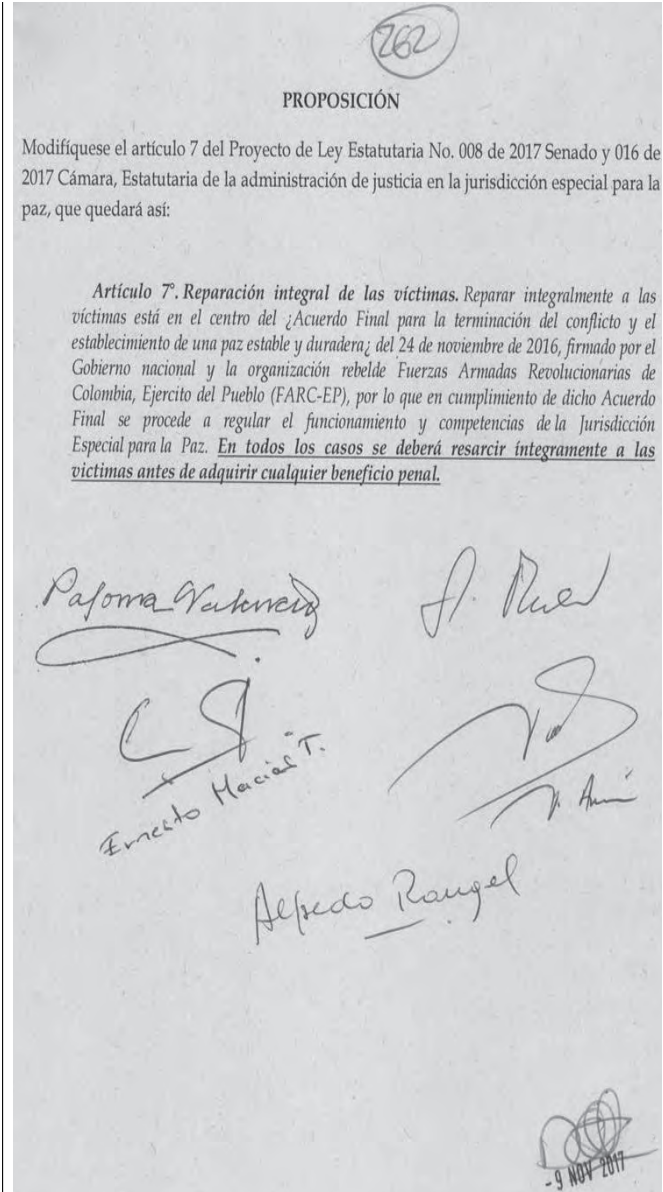 262
PROPOSICIÓN
Modifíquese el artículo 7 del Proyecto de Ley Estatutaria No. 008 de 2017 Senado y 016 de
2017 Cámara, Estatutaria de la administración de justicia en la jurisdicción especial para la
paz, que quedará así:
Artículo 7°. Reparación integral de las víctimas. Reparar integralmente a las
víctimas está en el centro del ¿Acuerdo Final para la terminación del conflicto y el
establecimiento de una paz estable y duradera¿ del 24 de noviembre de 2016, firmado por el
Gobierno nacional y la organización rebelde Fuerzas Armadas Revolucionarias de
Colombia, Ejercito del Pueblo (FARC-EP), por lo que en cumplimiento de dicho Acuerdo
Final se procede a regular el funcionamiento y competencias de la Jurisdicción
Especial para la Paz. En todos los casos se deberá resarcir íntegramente a las
victimas antes de adquirir cualquier beneficio penal.
Paloma Valencia
Ernesto Macías T.
Alfredo Rangel
- 9 NOV 2017